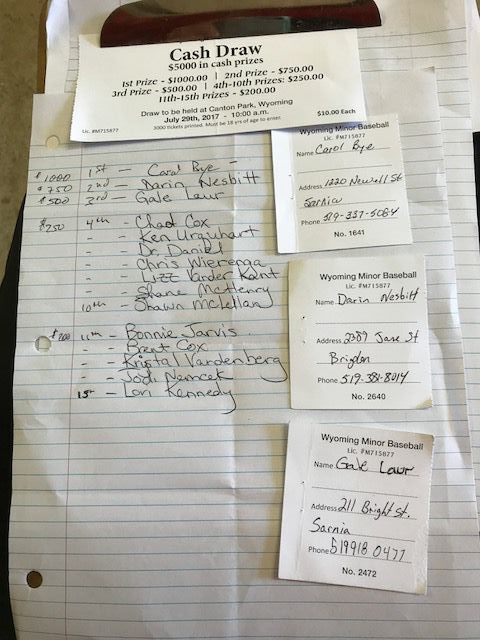 Cash Draw
$5000 in cash prizes
1st Prize - $1000.00 | 2nd Prize - $750.00
3rd Prize - $500.00 | 4th-10th Prizes: $250.00
11th-15th Prizes - $200.00
Draw to be held at Canton Park, Wyoming
July 29th, 2017 - 10:00 a.m.
3000 tickets printed. Must be 18 yrs of age to enter.
Lic. #M715877
$10.00 Each
$1000 1st - Carol Bye -
$750 2nd - Darin Nesbitt
$500 3rd - Gale Laur
$250 4th - Chad Cox
- - Ken Urquhart
- - Dr Daniel
- - Chris Wierenga
- - Lizz Vander Kant
- - Shane McHenry
10th - Shawn McLellan
$200 11th - Bonnie Jarvis
- - Brent Cox
- - Kristal Vandenberg
- - Jodi Nemcek
15th - Lori Kennedy
Wyoming Minor Baseball
Lic. #M715877
Name Carol Bye
Address 1220 Newell St
Sarnia
Phone 519-337-5064
No. 1641
Wyoming Minor Baseball
Lic. #M715877
Name Darin Nesbitt
Address 2389 Jane St
Brigden
Phone 519-381-8014
No. 2640
Wyoming Minor Baseball
Lic. #M715877
Name Gale Laur
Address 211 Bright St.
Sarnia
Phone 519 918 0477
No. 2472